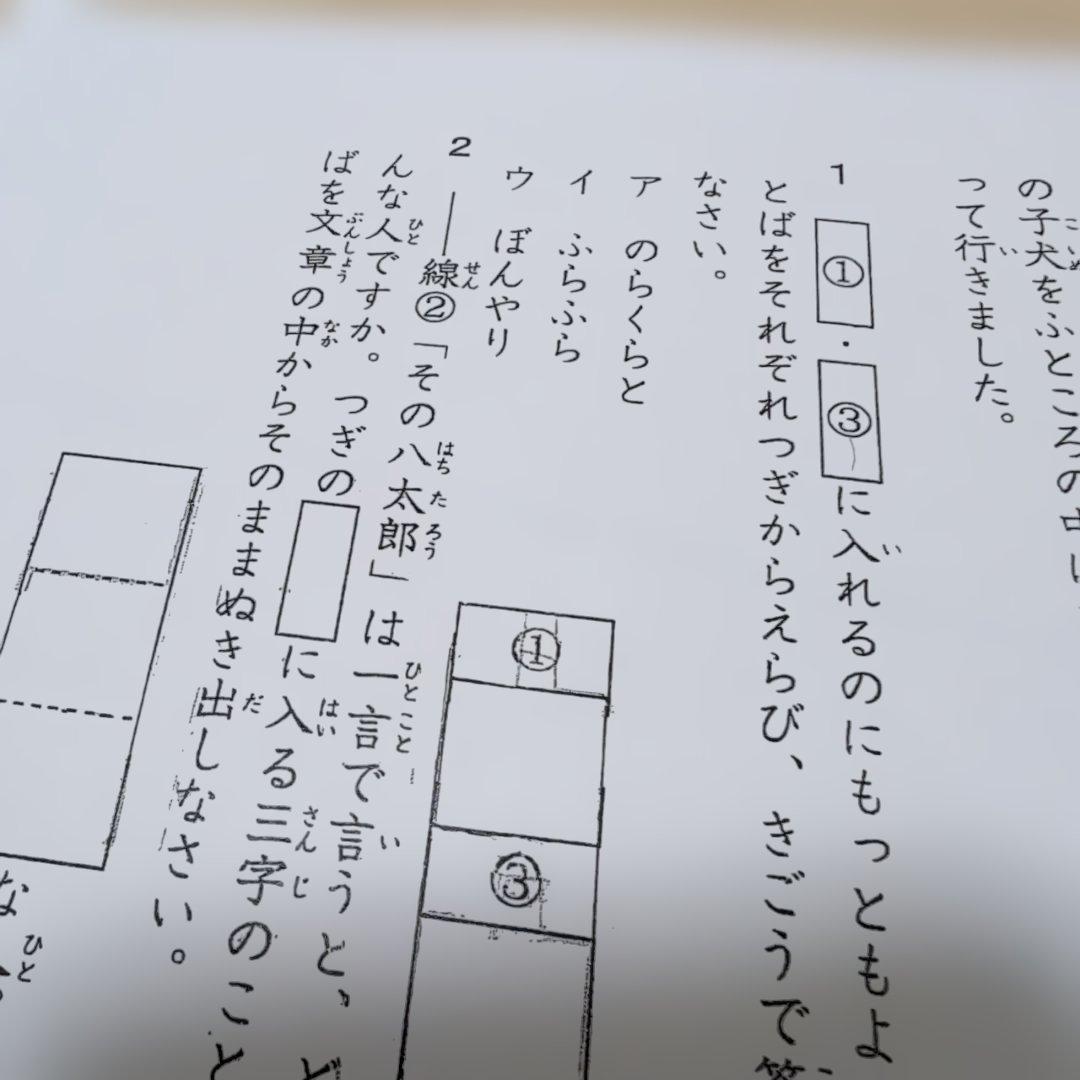 の子犬をふところの中に
って行きました。
1 ①・③に入れるのにもっともよ
とばをそれぞれつぎからえらび、きごうで答
なさい。
ア のらくらと
イ ふらふら
ウ ぼんやり
①
③
2 ――線②「その八太郎」は一言で言うと、ど
んな人ですか。つぎの に入る三字のこと
ばを文章の中からそのままぬき出しなさい。
な